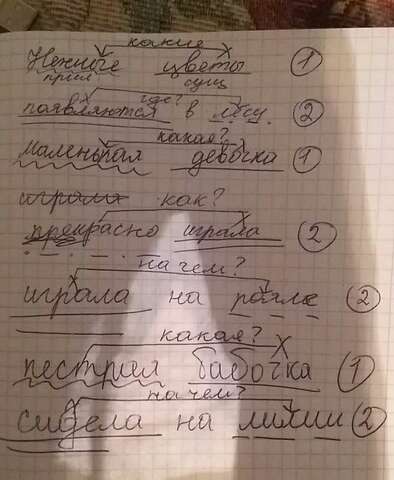 какие
Нежные цветы 1
прил сущ
где?
появляются в лесу 2
какая?
маленькая девочка 1
играла как?
прекрасно играла 2
на чем?
играла на рояле 2
какая?
пестрая бабочка 1
на чем?
сидела на лилии 2